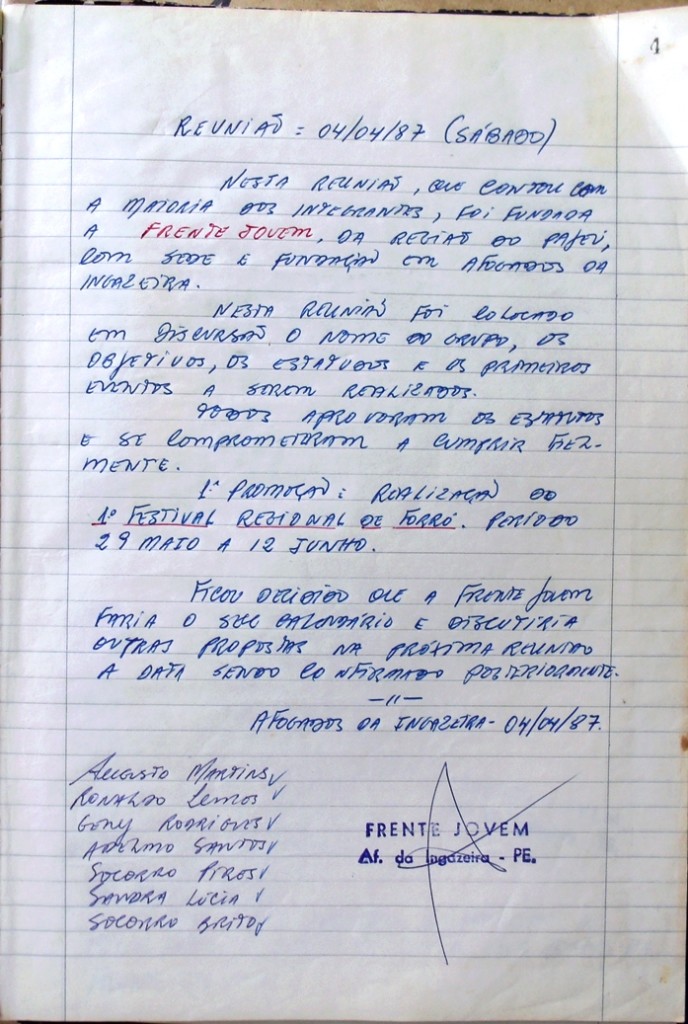 1
REUNIÃO = 04/04/87 (SÁBADO)
NESTA REUNIÃO, QUE CONTOU COM
A MAIORIA DOS INTEGRANTES, FOI FUNDADA
A FRENTE JOVEM, DA REGIÃO DO PAJEÚ,
COM SEDE E FUNDAÇÃO EM AFOGADOS DA
INGAZEIRA.
NESTA REUNIÃO FOI COLOCADO
EM DISCURSÃO O NOME DO GRUPO, OS
OBJETIVOS, OS ESTATUDOS E OS PRIMEIROS
EVENTOS A SEREM REALIZADOS.
TODOS APROVORAM OS ESTATUTOS
E SE COMPROMETERAM A CUMPRIR FIEL-
MENTE.
1ª PROMOÇÃO: REALIZAÇÃO DO
1º FESTIVAL REGIONAL DE FORRÓ. PERÍODO
29 MAIO A 12 JUNHO.
FICOU DECIDIDO QUE A FRENTE JOVEM
FARIA O SEU CALENDÁRIO E DISCUTIRIA
OUTRAS PROPOSTAS NA PRÓXIMA REUNIÃO
A DATA SENDO CONFIRMADO POSTERIORMENTE.
—11—
AFOGADOS DA INGAZEIRA - 04/04/87.
AUGUSTO MARTINS
RONALDO LEMOS
GENY RODRIGUES
ADELMO SANTOS
SOCORRO PIRES
SANDRA LÚCIA
SOCORRO BRITO
FRENTE JOVEM
Af. da Ingazeira - PE.